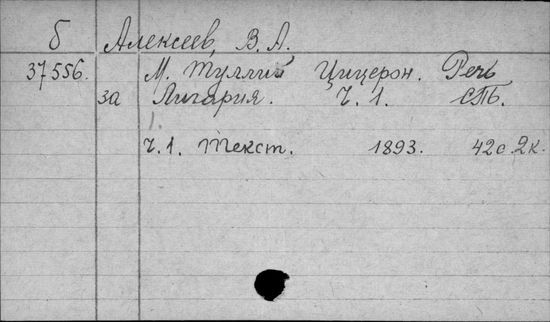 б Алексеев, В. А.
37556. М. Туллий Цицерон. Речь
за Лигария. Ч. 1. СПБ.
1.
Ч. 1. Текст. 1893. 42 с. 2 к.